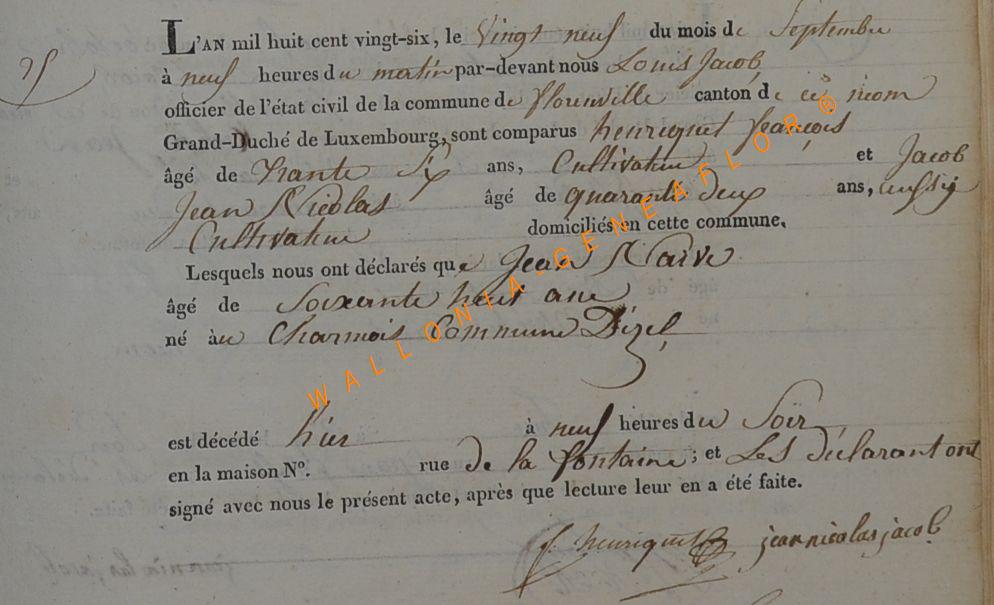 25
L'AN mil huit cent vingt-six, le Vingt neuf du mois de Septembre
à neuf heures du matin par-devant nous Louis Jacob
officier de l'état civil de la commune de florenville canton de ce nom
Grand-Duché de Luxembourg, sont comparus henriquet françois
âgé de trante Six ans, Cultivateur et Jacob
Jean Nicolas âgé de quarante deux ans, aussi
Cultivateur domiciliés en cette commune.
Lesquels nous ont déclarés que Jean
âgé de Soixante heut ans
né au Charmois Commune D'izel,
est décédé hier à neuf heures du Soir
en la maison N°. rue de la fontaine; et Les déclarant ont
signé avec nous le présent acte, après que lecture leur en a été faite.
f. henriquet jean nicolas jacob
WALLONIA-GENEAFLOR ©